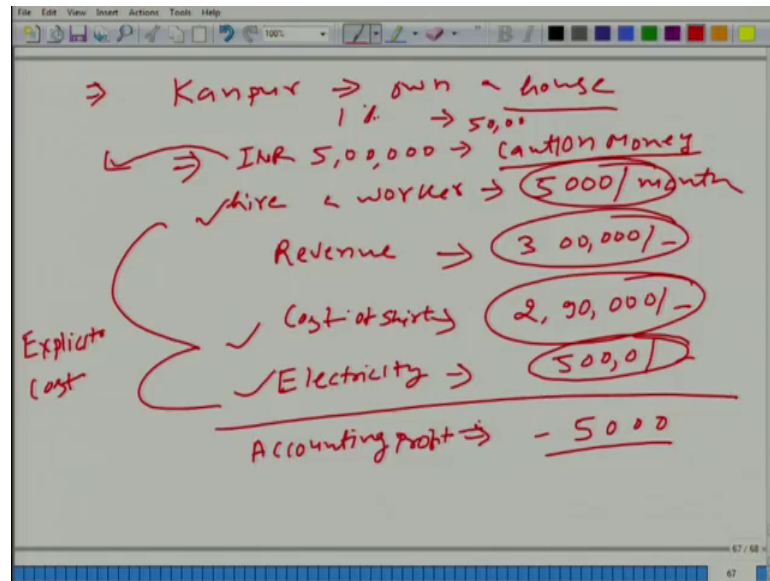 File Edit View Insert Actions Tools Help
100%
⇒ Kanpur → own a house
1 % → 50,00
⇒ INR 5,00,000 → Caution Money
✓ hire a worker → 5000/month
Revenue → 300,000/-
✓ Cost of shirt → 2,90,000/-
Explicit cost
✓ Electricity → 500,0/
Accounting profit ⇒ - 5000
67 / 68
67